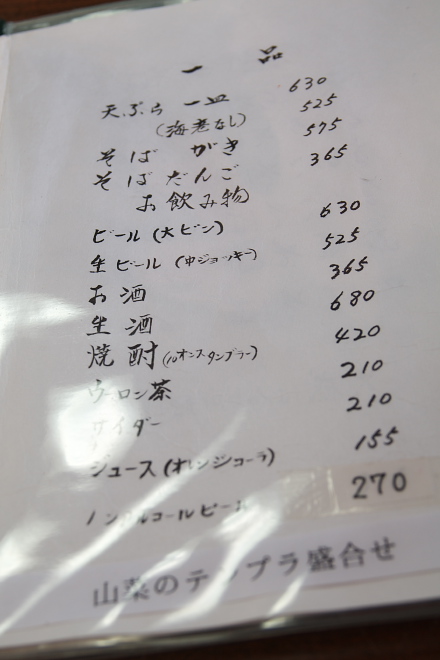 一品
天ぷら 一皿 630
(海老なし) 525
そばがき 575
そばだんご 365
お飲み物
ビール (大ビン) 630
生ビール (中ジョッキー) 525
お酒 365
生酒 680
焼酎 (10オンスタンブラー) 420
ウーロン茶 210
サイダー 210
ジュース (オレンジコーラ) 155
ノンアルコールビール 270
山菜のテンプラ盛合せ